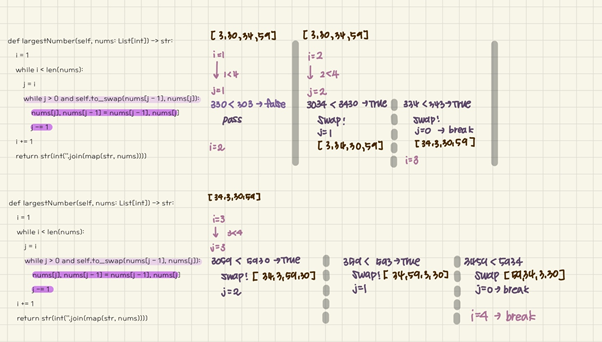 def largestNumber(self, nums: List[int]) -> str:
i = 1
while i < len(nums):
j = i
while j > 0 and self.to_swap(nums[j - 1], nums[j]):
nums[j], nums[j - 1] = nums[j - 1], nums[j]
j -= 1
i += 1
return str(int("".join(map(str, nums))))
[3,30,34,59]
i=1
1<4
j=1
330 < 303 → false
pass
i=2
[3,30,34,59]
i=2
2<4
j=2
3034 < 3430 → True
swap!
j=1
[3,34,30,59]
334 < 343 → True
swap!
j=0 → break
[34,3,30,59]
i=3
def largestNumber(self, nums: List[int]) -> str:
i = 1
while i < len(nums):
j = i
while j > 0 and self.to_swap(nums[j - 1], nums[j]):
nums[j], nums[j - 1] = nums[j - 1], nums[j]
j -= 1
i += 1
return str(int("".join(map(str, nums))))
[34,3,30,59]
i=3
3<4
j=3
3059 < 5930 → True
swap! [34,3,59,30]
j=2
359 < 593 → True
swap! [34,59,3,30]
j=1
3459 < 5934
swap [59,34,3,30]
j=0 → break
i=4 → break